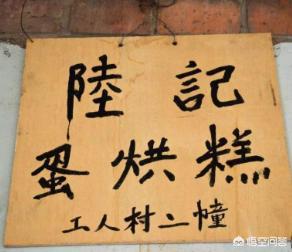 陸記
蛋烘糕
工人村二幢
悟空问答